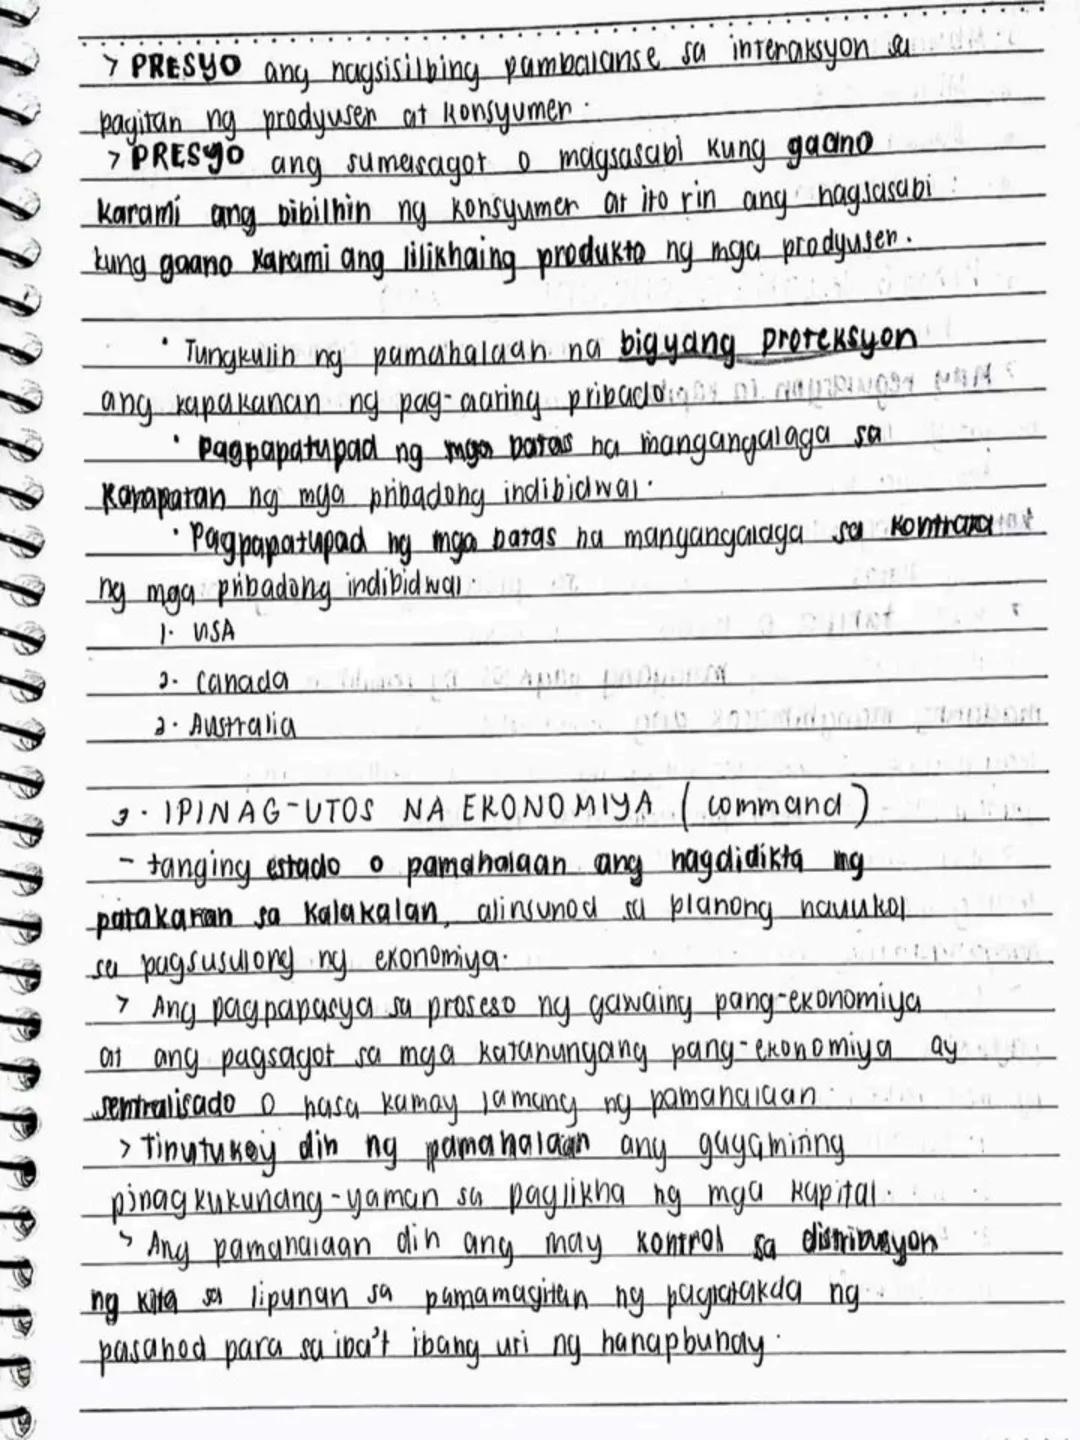 > PRESYO ang nagsisilbing pambalanse sa interaksyon sa
pagitan ng prodyuser at konsyumer.
> PRESYO ang sumasagot o magsasabi kung gaano
karami ang bibilhin ng konsyumer at ito rin ang nagsasabi
kung gaano karami ang lilikhaing produkto ng mga prodyuser.
• Tungkulin ng pamahalaan na bigyang proteksyon
ang kapakanan ng pag-aaring pribado.
• Pagpapatupad ng mga batas na mangangalaga sa
karapatan ng mga pribadong indibidwal.
• Pagpapatupad ng mga batas na mangangalaga sa kontrata
ng mga pribadong indibidwal.
1. USA
2. Canada
3. Australia
3. IPINAG-UTOS NA EKONOMIYA (command)
- tanging estado o pamahalaan ang nagdidikta ng
patakaran sa kalakalan, alinsunod sa planong nauukol
sa pagsusulong ng ekonomiya.
> Ang pagpapasya sa proseso ng gawaing pang-ekonomiya
at ang pagsagot sa mga katanungang pang-ekonomiya ay
sentralisado o nasa kamay lamang ng pamahalaan.
> Tinutukoy din ng pamahalaan ang gagamiting
pinagkukunang-yaman sa paglikha ng mga kapital.
> Ang pamahalaan din ang may kontrol sa distribusyon
ng kita sa lipunan sa pamamagitan ng pagtatakda ng
pasahod para sa iba't ibang uri ng hanapbuhay.